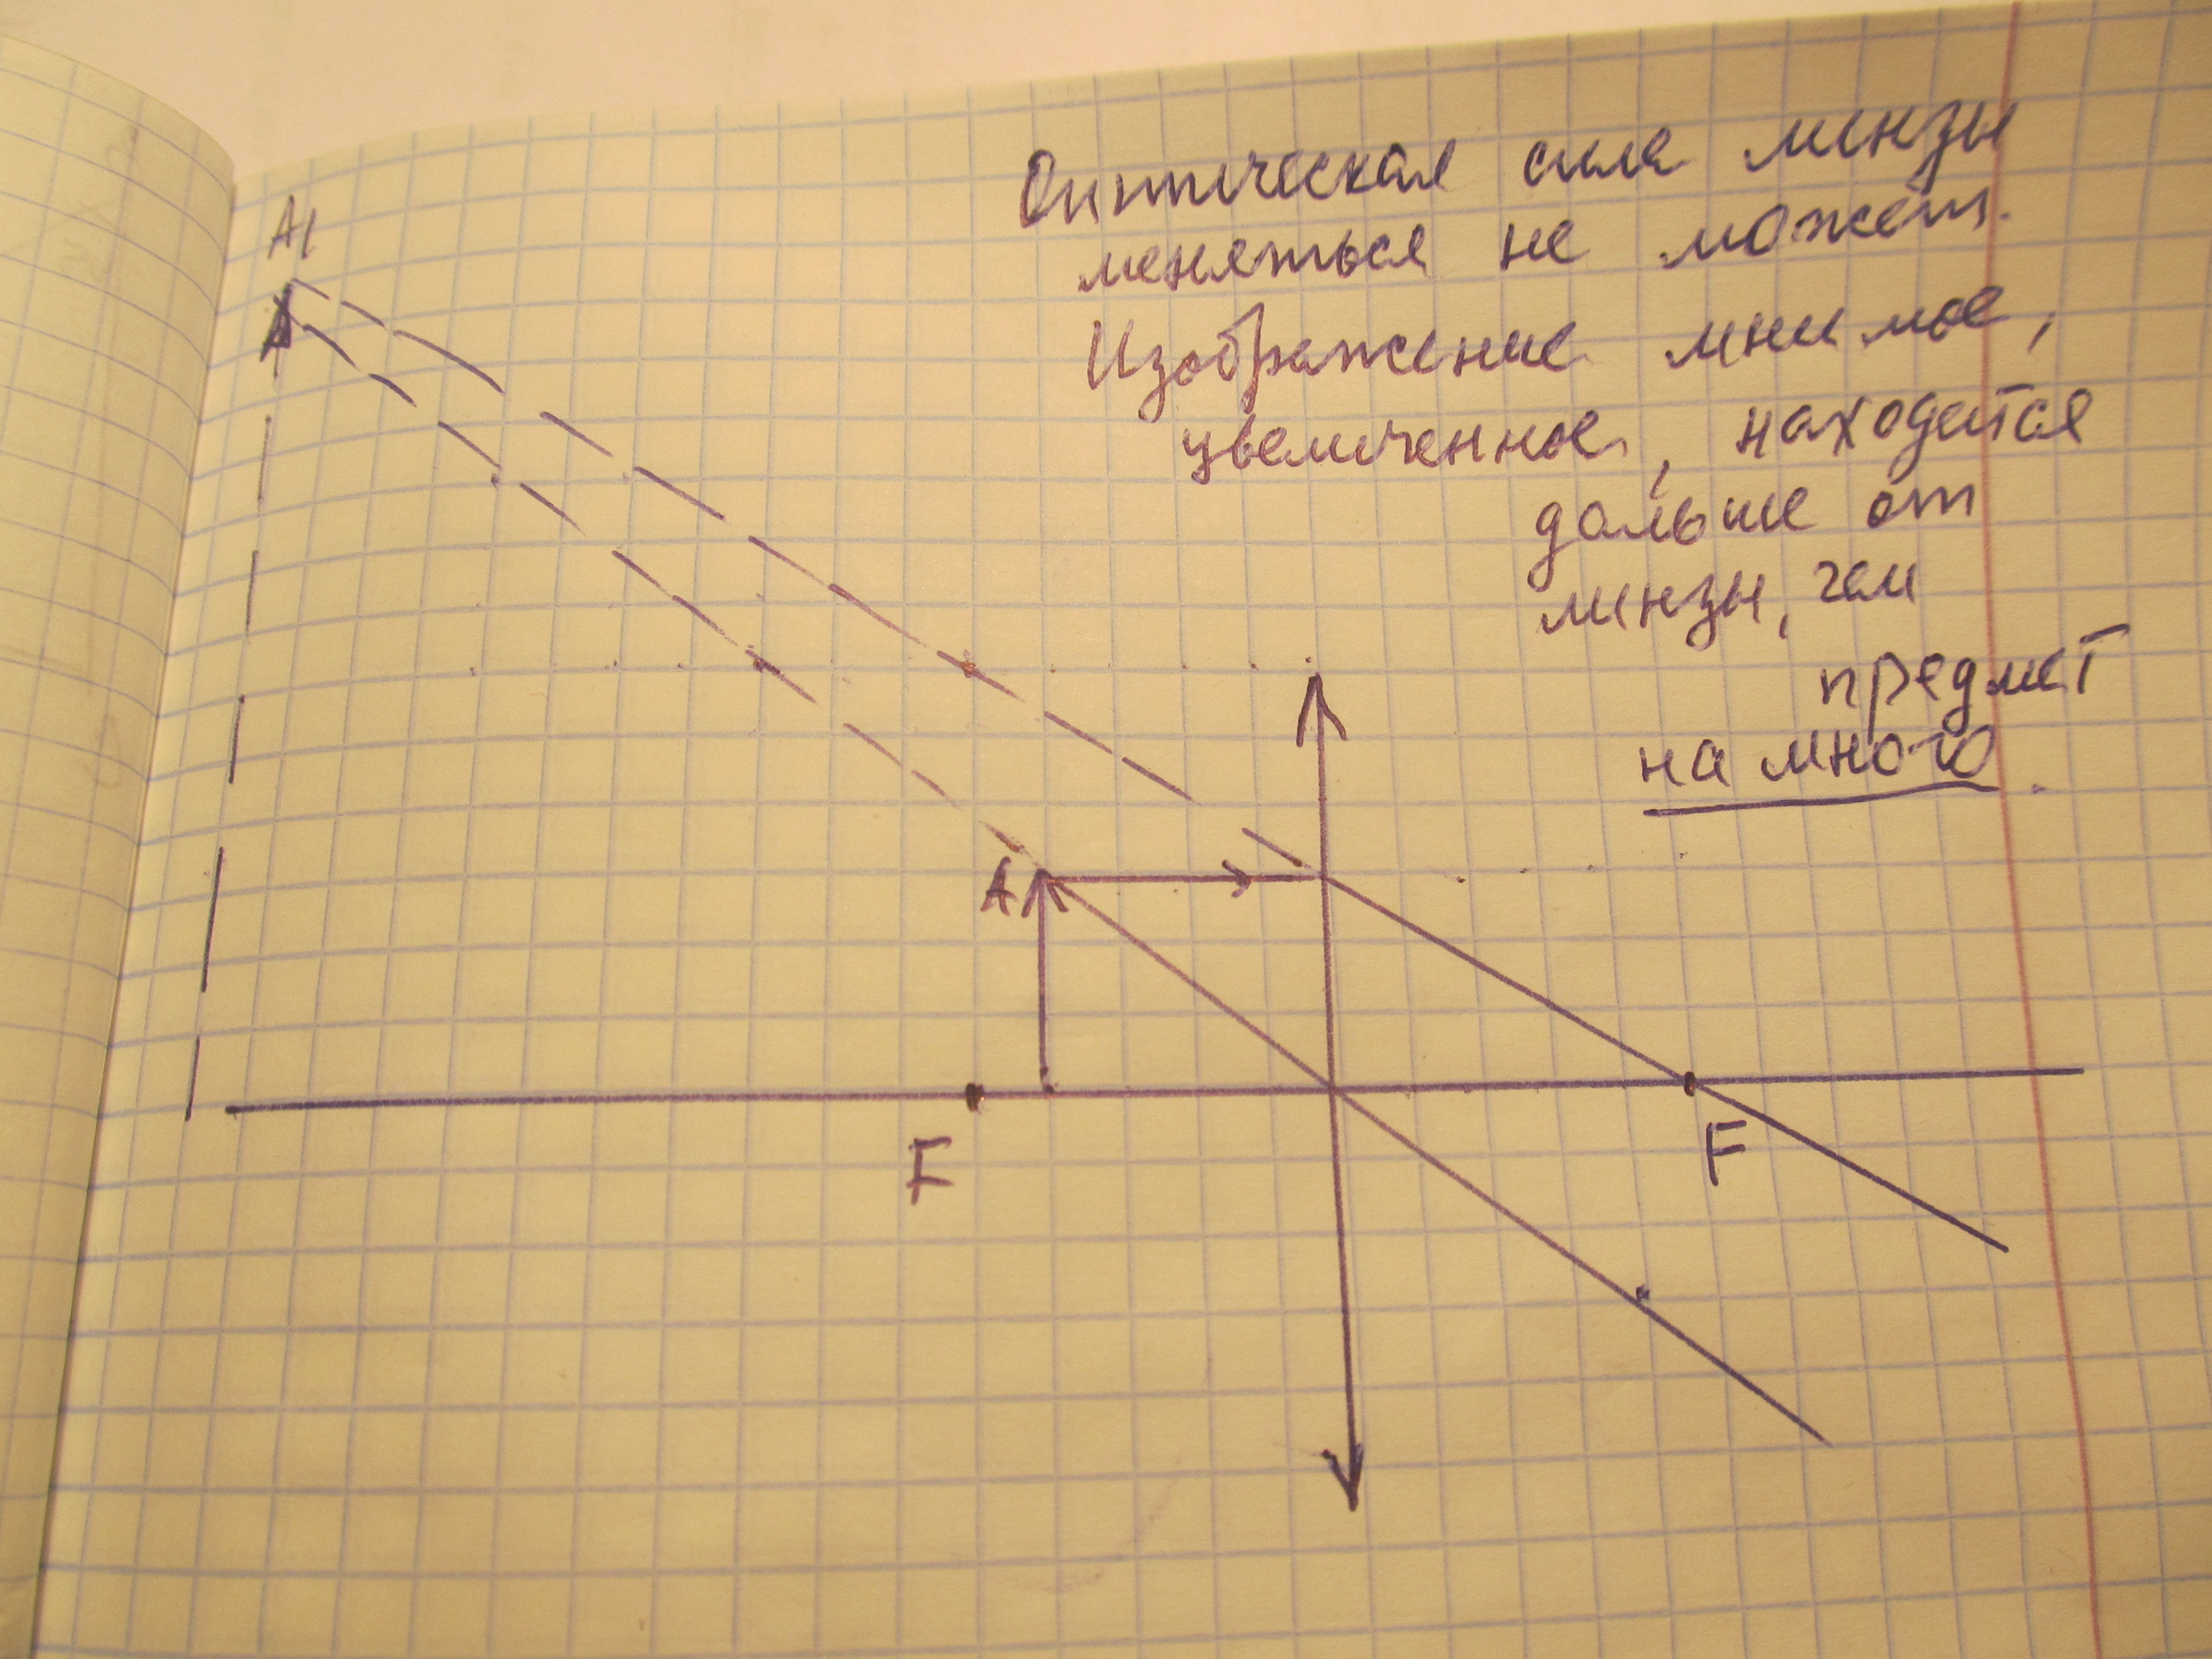 Оптическая сила линзы
меняться не может.
Изображение мнимое,
увеличенное, находится
дальше от
линзы, чем
предмет
на много.
A1
A
F
F